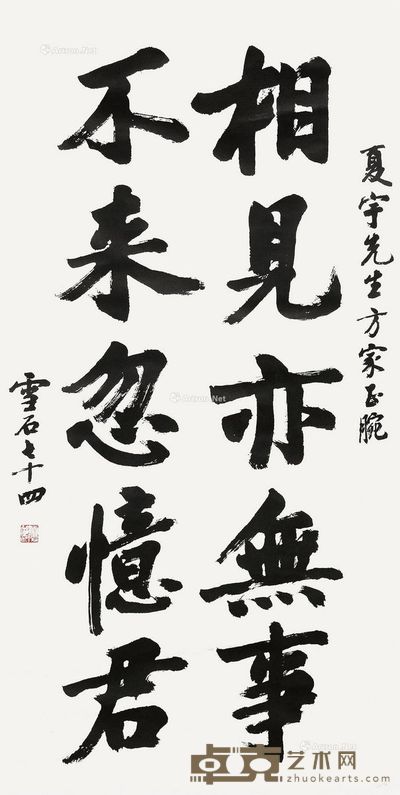 夏宇先生方家正腕
相見亦無事
不来忽憶君
雪石七十四
卓克艺术网
zhuokearts.com